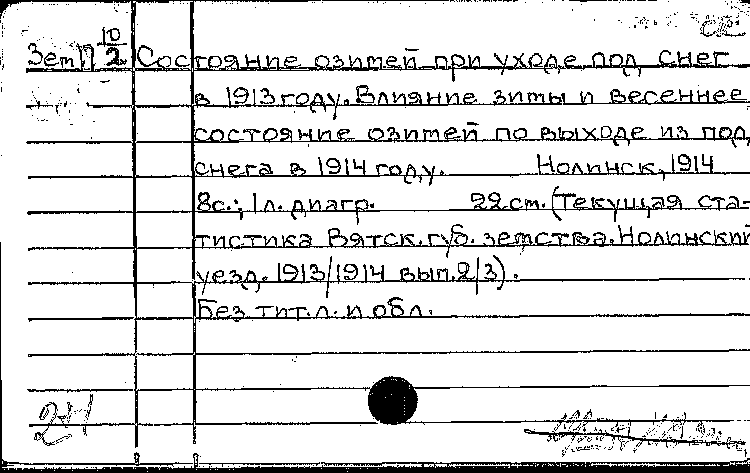 Зет П 10/2 Состояние озимей при уходе под снег
в 1913 году. Влияние зимы и весеннее
состояние озимей по выходе из под
снега в 1914 году. Нолинск, 1914
8с.; 1л. диагр. 22 см. (Текущая ста-
тистика Вятск. губ. земства. Нолинский
уезд. 1913/1914 вып. 2/3).
Без тит. л. и обл.